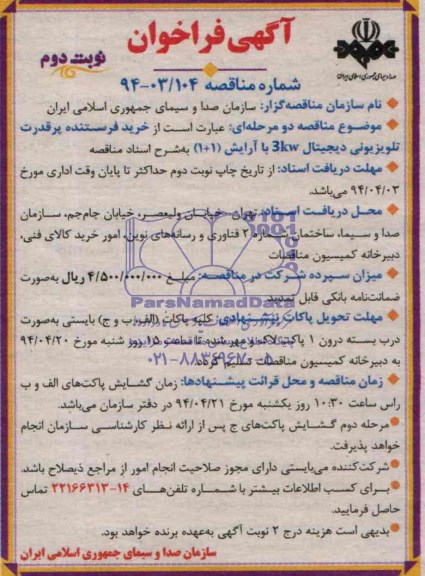 آگهی فراخوان
نوبت دوم
صدا و سیمای جمهوری اسلامی ایران
شماره مناقصه ۹۴-۰۳/۱۰۴
نام سازمان مناقصه‌گزار: سازمان صدا و سیمای جمهوری اسلامی ایران
موضوع مناقصه دو مرحله‌ای: عبارت است از خرید فرستنده پرقدرت
تلویزیونی دیجیتال 3kw با آرایش (۱+۱) به‌شرح اسناد مناقصه
مهلت دریافت اسناد: از تاریخ چاپ نوبت دوم حداکثر تا پایان وقت اداری مورخ
۹۴/۰۴/۰۳ می‌باشد.
محل دریافت اسناد: تهران، خیابان ولیعصر، خیابان جام‌جم، سازمان
صدا و سیما، ساختمان شماره ۲ فناوری و رسانه‌های نوین، امور خرید کالای فنی،
دبیرخانه کمیسیون مناقصات
میزان سپرده شرکت در مناقصه: مبلغ ۴/۵۰۰/۰۰۰/۰۰۰ ریال به‌صورت
ضمانت‌نامه بانکی قابل تمدید
ParsNamadData
مهلت تحویل پاکات پیشنهادی: کلیه پاکات (الف، ب و ج) بایستی به‌صورت
درب بسته درون ۱ پاکت لاک و مهر شده تا ساعت ۱۵ روز شنبه مورخ ۹۴/۰۴/۲۰
به دبیرخانه کمیسیون مناقصات تسلیم گردد.
۰۲۱-۸۸۳۴۹۶۷۰-۵
زمان مناقصه و محل قرائت پیشنهادها: زمان گشایش پاکت‌های الف و ب
راس ساعت ۱۰:۳۰ روز یکشنبه مورخ ۹۴/۰۴/۲۱ در دفتر سازمان می‌باشد.
مرحله دوم گشایش پاکت‌های ج پس از ارائه نظر کارشناسی سازمان انجام
خواهد پذیرفت.
شرکت‌کننده می‌بایستی دارای مجوز صلاحیت انجام امور از مراجع ذیصلاح باشد.
برای کسب اطلاعات بیشتر با شماره تلفن‌های ۱۴-۲۲۱۶۶۳۱۳ تماس
حاصل فرمایید.
بدیهی است هزینه درج ۲ نوبت آگهی به‌عهده برنده خواهد بود.
سازمان صدا و سیمای جمهوری اسلامی ایران